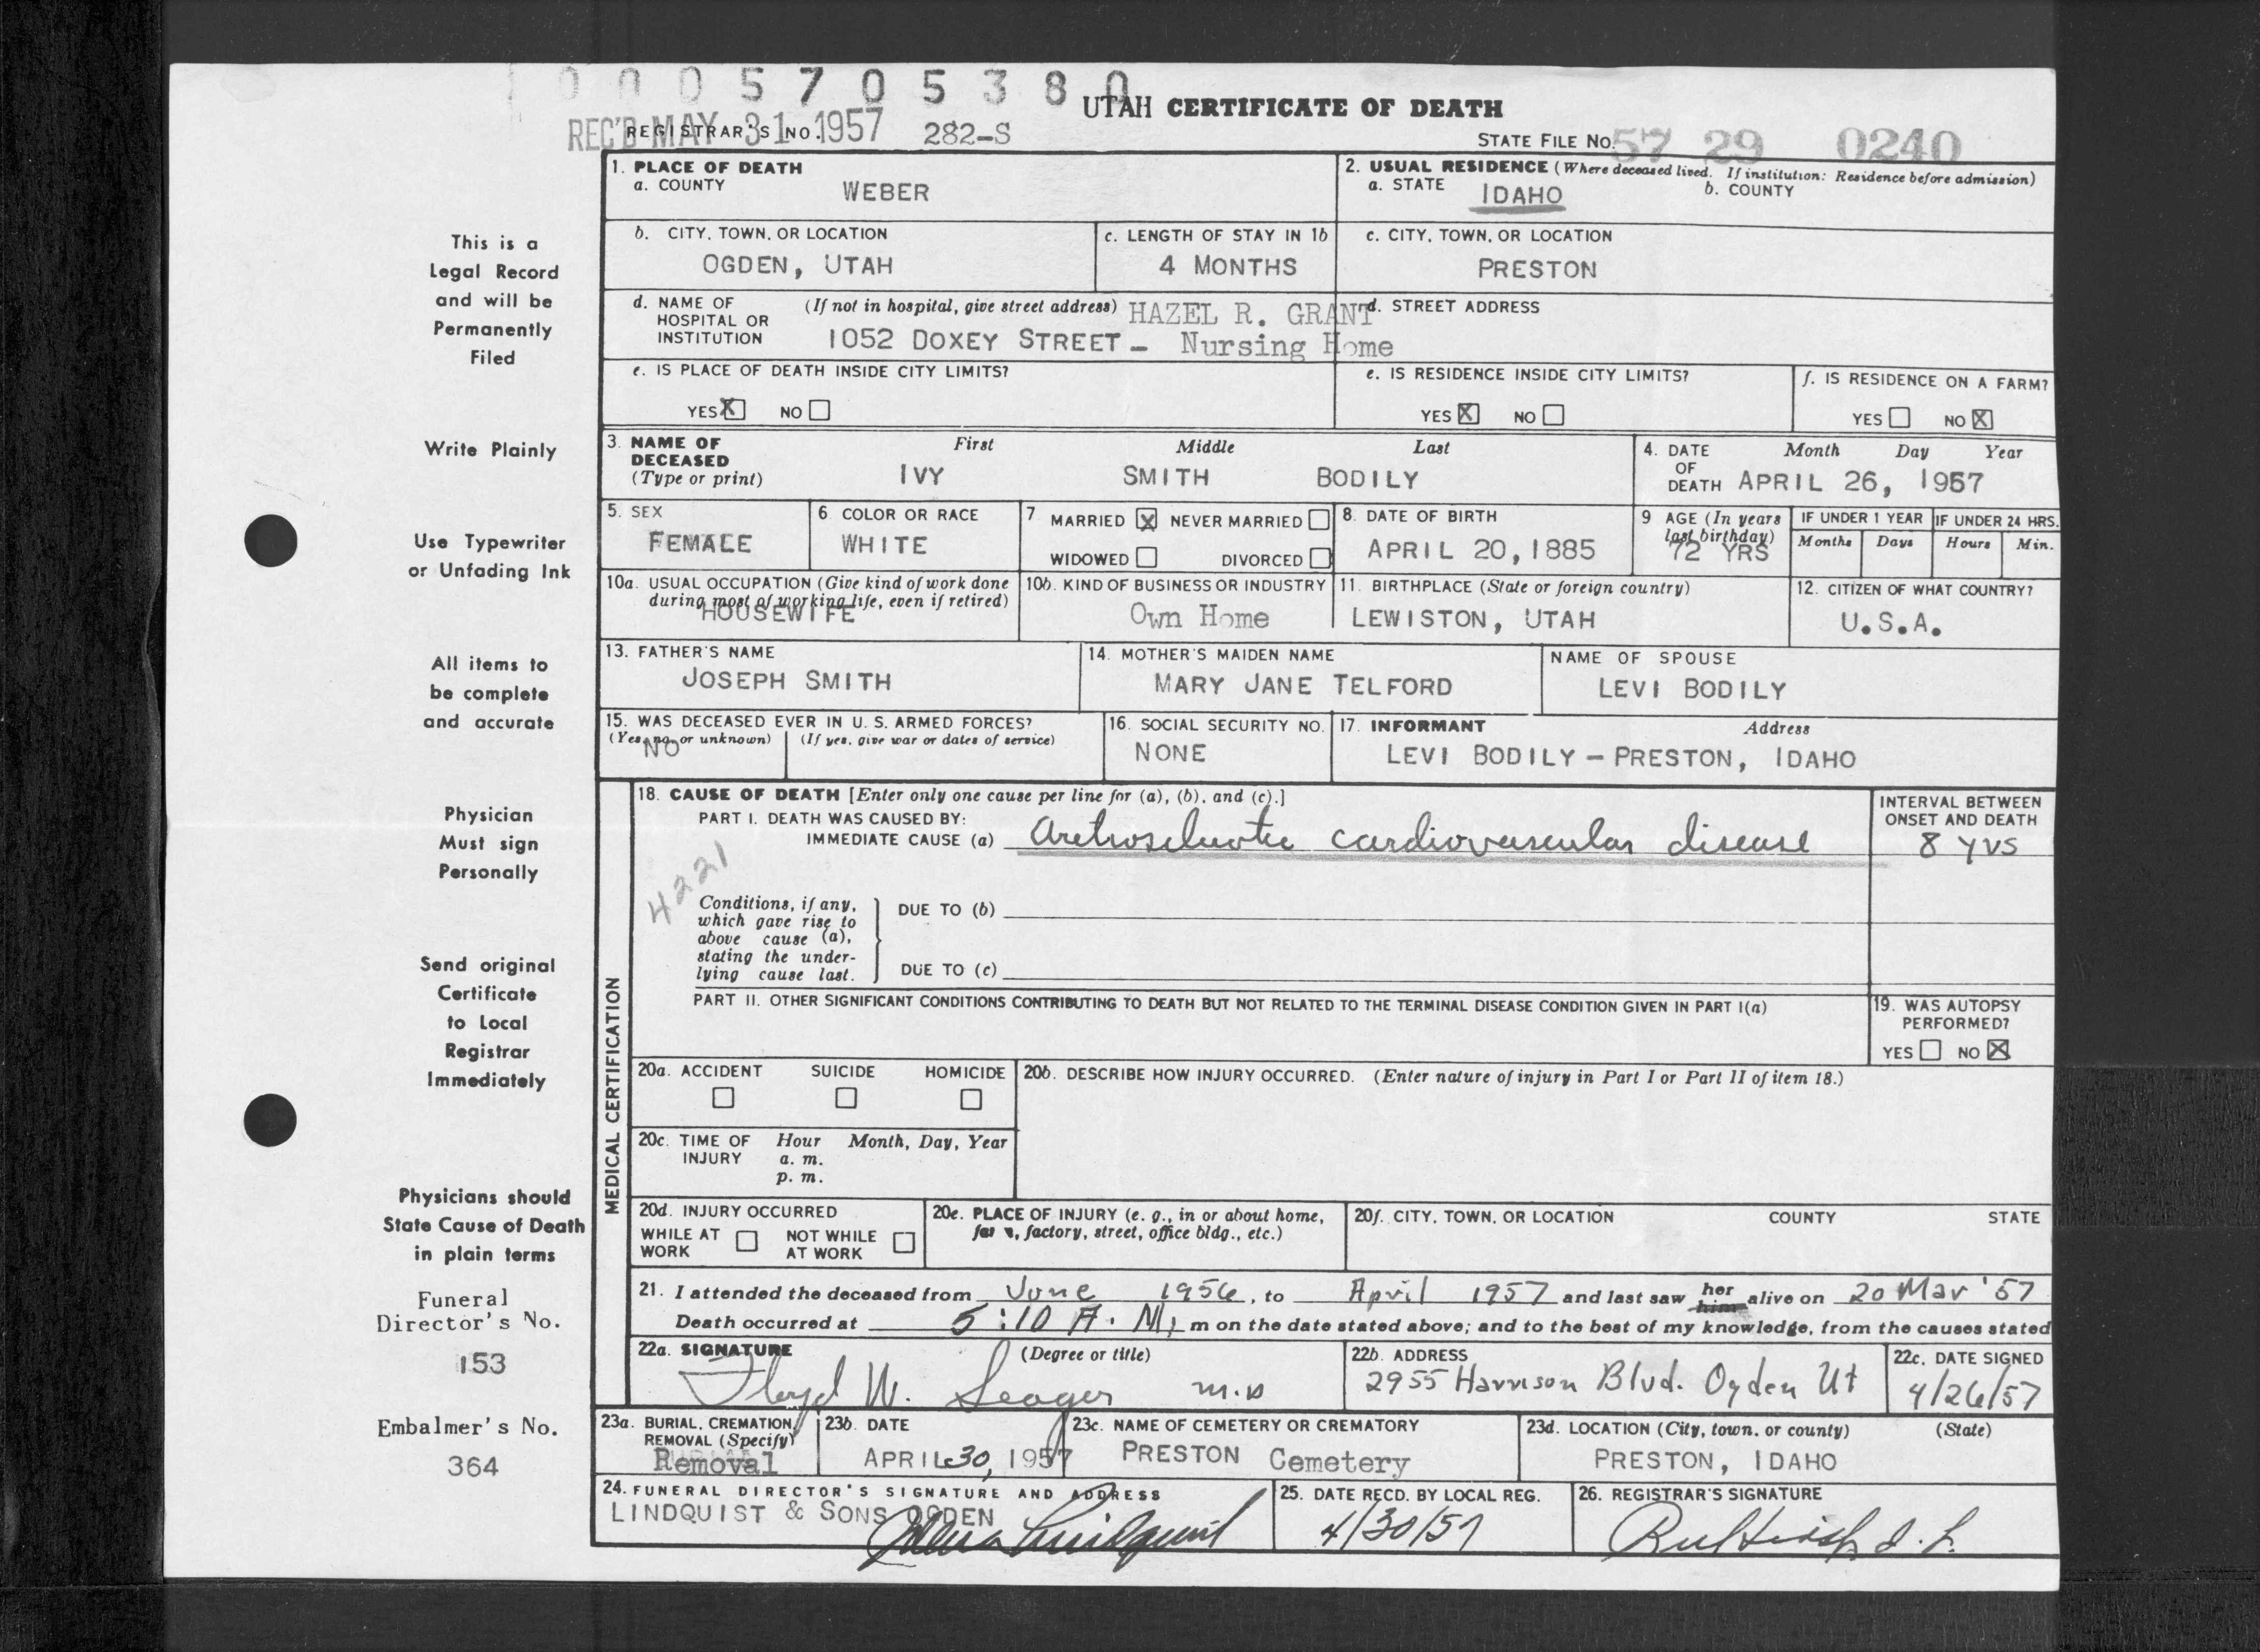 0 0 0 5 7 0 5 3 8 0
UTAH CERTIFICATE OF DEATH
REC'D MAY 31 1957
REGISTRAR'S NO. 282-S
STATE FILE NO. 57 29 0240
This is a
Legal Record
and will be
Permanently
Filed
Write Plainly
Use Typewriter
or Unfading Ink
All items to
be complete
and accurate
Physician
Must sign
Personally
Send original
Certificate
to Local
Registrar
Immediately
Physicians should
State Cause of Death
in plain terms
Funeral
Director's No.
153
Embalmer's No.
364
1. PLACE OF DEATH
a. COUNTY WEBER
2. USUAL RESIDENCE (Where deceased lived. If institution: Residence before admission)
a. STATE IDAHO b. COUNTY
b. CITY, TOWN, OR LOCATION
OGDEN, UTAH
c. LENGTH OF STAY IN 1b
4 MONTHS
c. CITY, TOWN, OR LOCATION
PRESTON
d. NAME OF HOSPITAL OR INSTITUTION (If not in hospital, give street address) HAZEL R. GRANT
1052 DOXEY STREET - Nursing Home
d. STREET ADDRESS
e. IS PLACE OF DEATH INSIDE CITY LIMITS?
YES X NO
e. IS RESIDENCE INSIDE CITY LIMITS?
YES X NO
f. IS RESIDENCE ON A FARM?
YES NO X
3. NAME OF DECEASED (Type or print)
First Middle Last
IVY SMITH BODILY
4. DATE OF DEATH Month Day Year
APRIL 26, 1957
5. SEX
FEMALE
6. COLOR OR RACE
WHITE
7 MARRIED X NEVER MARRIED
WIDOWED DIVORCED
8. DATE OF BIRTH
APRIL 20, 1885
9 AGE (In years last birthday)
72 YRS
IF UNDER 1 YEAR
Months Days
IF UNDER 24 HRS.
Hours Min.
10a. USUAL OCCUPATION (Give kind of work done during most of working life, even if retired)
HOUSEWIFE
10b. KIND OF BUSINESS OR INDUSTRY
Own Home
11. BIRTHPLACE (State or foreign country)
LEWISTON, UTAH
12. CITIZEN OF WHAT COUNTRY?
U.S.A.
13. FATHER'S NAME
JOSEPH SMITH
14. MOTHER'S MAIDEN NAME
MARY JANE TELFORD
NAME OF SPOUSE
LEVI BODILY
15. WAS DECEASED EVER IN U. S. ARMED FORCES?
(Yes, no, or unknown) (If yes, give war or dates of service)
NO
16. SOCIAL SECURITY NO.
NONE
17. INFORMANT Address
LEVI BODILY - PRESTON, IDAHO
MEDICAL CERTIFICATION
18. CAUSE OF DEATH [Enter only one cause per line for (a), (b), and (c).]
PART I. DEATH WAS CAUSED BY:
IMMEDIATE CAUSE (a) cardiovascular disease
INTERVAL BETWEEN ONSET AND DEATH
8 yrs
4221
Conditions, if any, which gave rise to above cause (a), stating the underlying cause last.
DUE TO (b)
DUE TO (c)
PART II. OTHER SIGNIFICANT CONDITIONS CONTRIBUTING TO DEATH BUT NOT RELATED TO THE TERMINAL DISEASE CONDITION GIVEN IN PART I(a)
19. WAS AUTOPSY PERFORMED?
YES NO X
20a. ACCIDENT SUICIDE HOMICIDE
20b. DESCRIBE HOW INJURY OCCURRED. (Enter nature of injury in Part I or Part II of item 18.)
20c. TIME OF INJURY Hour Month, Day, Year
a. m.
p. m.
20d. INJURY OCCURRED
WHILE AT WORK NOT WHILE AT WORK
20e. PLACE OF INJURY (e. g., in or about home, factory, street, office bldg., etc.)
20f. CITY, TOWN, OR LOCATION COUNTY STATE
21. I attended the deceased from June 1956, to April 1957 and last saw her him alive on 20 Mar '57
Death occurred at 5:10 A. M, m on the date stated above; and to the best of my knowledge, from the causes stated
22a. SIGNATURE (Degree or title)
Floyd W. Seager M.D
22b. ADDRESS
2955 Harrison Blvd. Ogden Ut
22c. DATE SIGNED
4/26/57
23a. BURIAL, CREMATION, REMOVAL (Specify)
Removal
23b. DATE
APRIL 30, 1957
23c. NAME OF CEMETERY OR CREMATORY
PRESTON Cemetery
23d. LOCATION (City, town, or county) (State)
PRESTON, IDAHO
24. FUNERAL DIRECTOR'S SIGNATURE AND ADDRESS
LINDQUIST & SONS OGDEN
25. DATE RECD. BY LOCAL REG.
4/30/57
26. REGISTRAR'S SIGNATURE